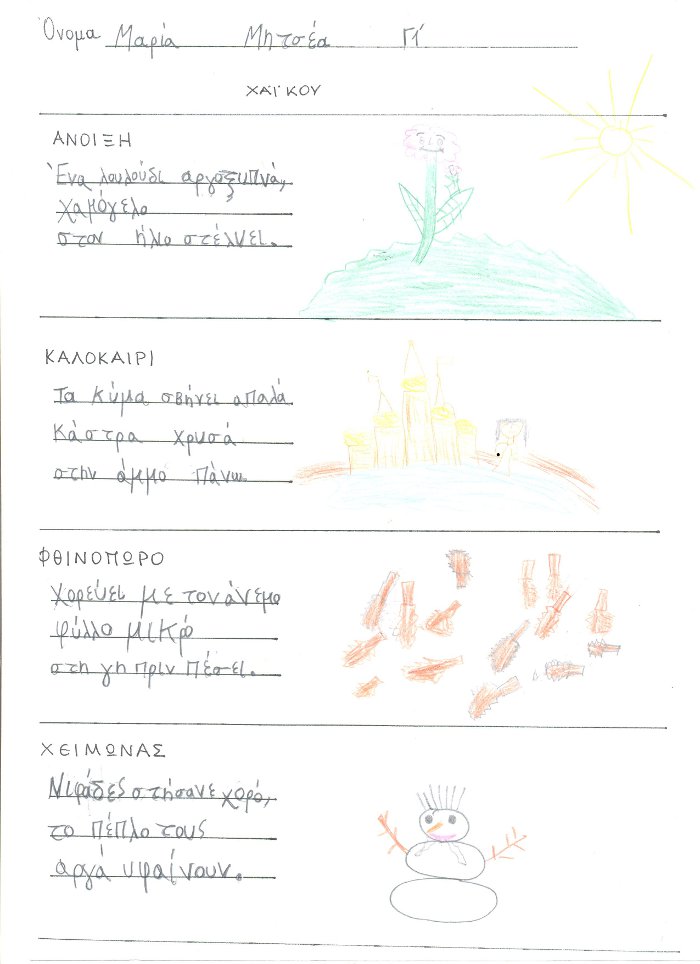 Όνομα Μαρία Μητσέα Γ΄
ΧΑΪΚΟΥ
ΑΝΟΙΞΗ
Ένα λουλούδι αργοξυπνά,
χαμόγελο
στον ήλιο στέλνει.
ΚΑΛΟΚΑΙΡΙ
Τα κύμα σβήνει απαλά
Κάστρα χρυσά
στην άμμο πάνω.
ΦΘΙΝΟΠΩΡΟ
Χορεύει με τον άνεμο
φύλλο μικρό
στη γη πριν πέσει.
ΧΕΙΜΩΝΑΣ
Νιφάδες στήσανε χορό,
το πέπλο τους
αργά υφαίνουν.